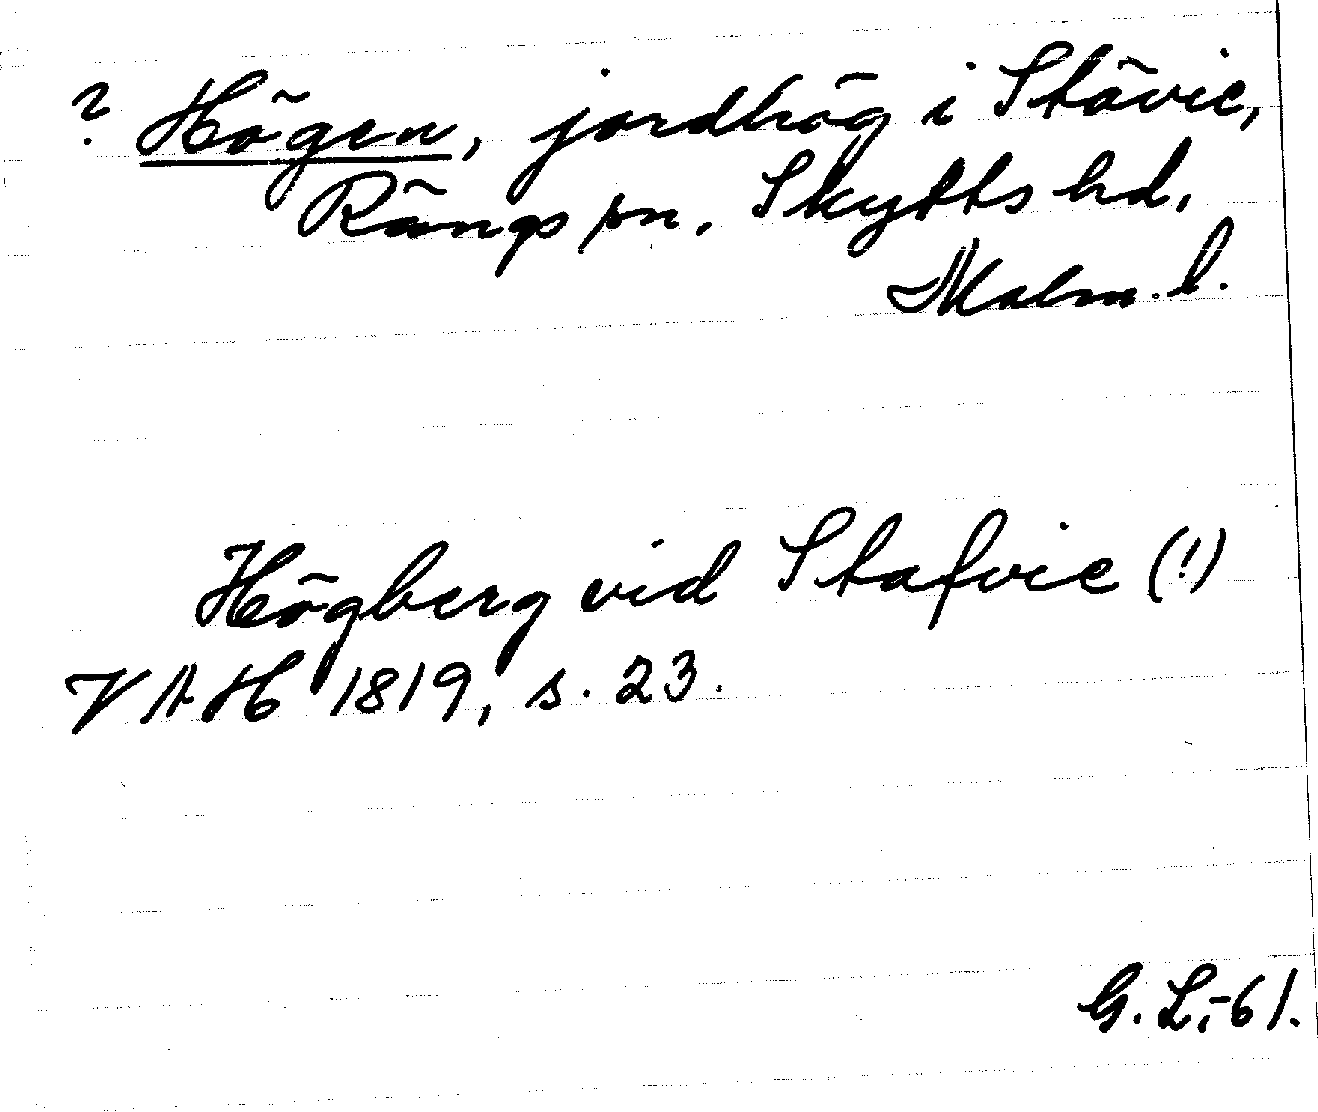 ? Högen, jordhög i Stävie,
Rängs sn. Skytts hd.
Malm. l.
Högberg vid Stafvie (!)
VAH 1819, s. 23.
G. L. -61.